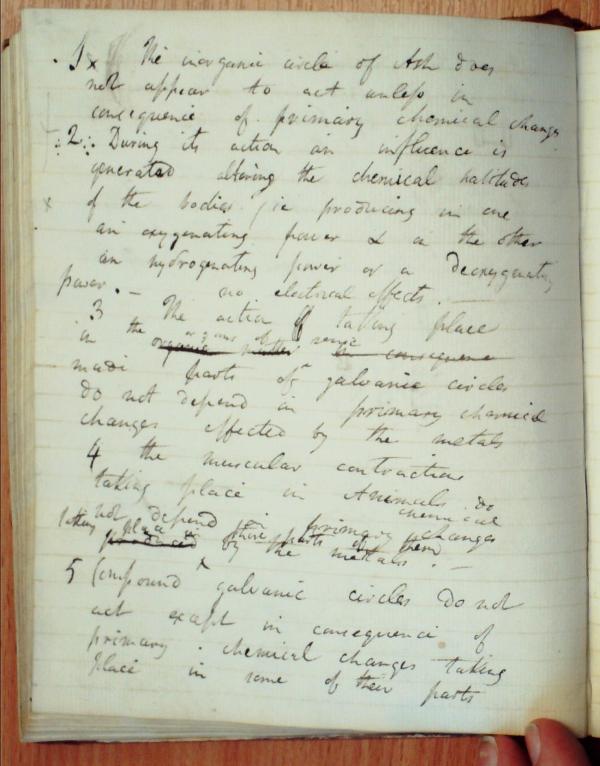 1 × The inorganic circle of Ash does
not appear to act unless in
consequence of primary chemical changes
:2: During its action an influence is
generated altering the chemical habitudes
of the bodies ie producing in one
an oxygenating power & in the other
an hydrogenating power or a deoxygenating
power. — no electrical effects. —
3 The action taking place
in the organs of sense
organic matter in consequence
made parts of galvanic circles
do not depend in primary chemical
changes effected by the metals
4 the muscular contractions
taking place in Animals do
not depend on primary chemical changes
taking place in those parts of them
produced by the metals. —
5 Compound galvanic circles do not
act except in consequence of
primary chemical changes taking
place in some of their parts